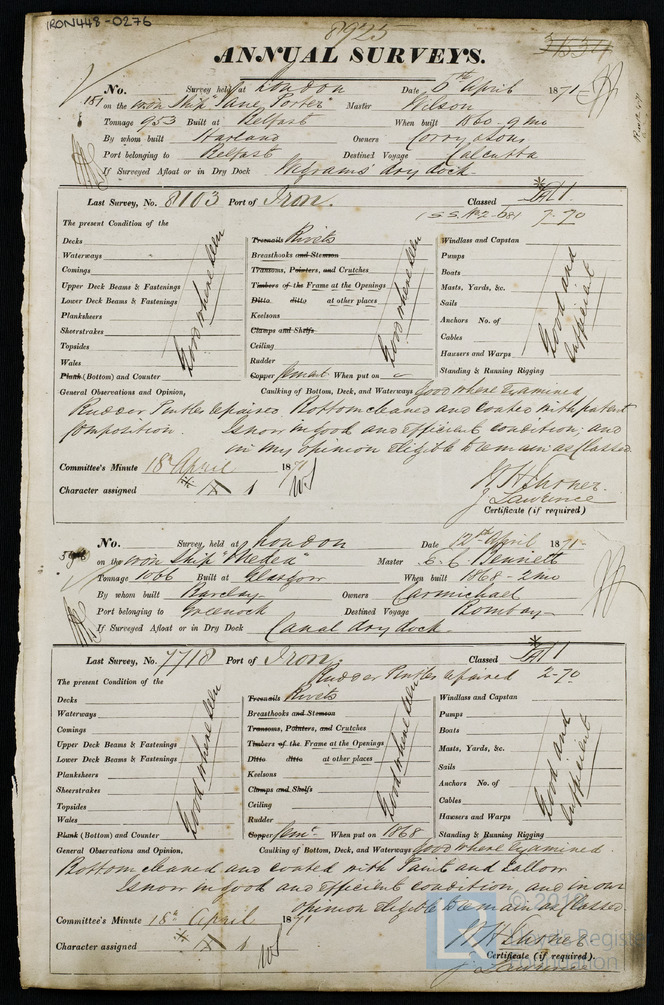 IRON448-0276
8925
ANNUAL SURVEYS.
No. Survey held at London Date 6th April 1871
on the iron Ship "Jane Porter" Master Wilson
Tonnage 953 Built at Belfast When built 1860-9mo
By whom built Harland Owners Corry &Sons
Port belonging to Belfast Destined Voyage Calcutta
If Surveyed Afloat or in Dry Dock Wigrams' dry dock
Last Survey, No. 8103 Port of Iron. Classed
7-70
The present Condition of the
Decks Treenails Rivets Windlass and Capstan
Waterways Breasthooks and Stemson Pumps
Comings Transoms, Pointers, and Crutches Boats
Upper Deck Beams & Fastenings Timbers of the Frame at the Openings Masts, Yards, &c.
Lower Deck Beams & Fastenings Ditto ditto at other places Sails
Planksheers Keelsons Anchors No. of
Sheerstrakes Clamps and Shelfs Cables
Topsides Ceiling Hawsers and Warps
Wales Rudder Standing & Running Rigging
Good where seen Good where seen Good and sufficient
Plank (Bottom) and Counter Copper Cement When put on
General Observations and Opinion, Caulking of Bottom, Deck, and Waterways Good where examined
Rudder Pintles repaired. Bottom cleaned and coated with patent
Composition. Is now in good and efficient condition, and
in my opinion eligible to remain as Classed.
Committee's Minute 18th April 1871
Character assigned A 1
J Lawrence
Certificate (if required)
No. Survey held at London Date 12th April 1871
on the iron Ship "Medea" Master Bennett
Tonnage 1066 Built at Glasgow When built 1868-2mo
By whom built Barclay Owners Carmichael
Port belonging to Greenock Destined Voyage Bombay
If Surveyed Afloat or in Dry Dock Canal dry dock
Last Survey, No. 7718 Port of Iron. Classed
Rudder Pintles repaired 2-70
The present Condition of the
Decks Treenails Rivets Windlass and Capstan
Waterways Breasthooks and Stemson Pumps
Comings Transoms, Pointers, and Crutches Boats
Upper Deck Beams & Fastenings Timbers of the Frame at the Openings Masts, Yards, &c.
Lower Deck Beams & Fastenings Ditto ditto at other places Sails
Planksheers Keelsons Anchors No. of
Sheerstrakes Clamps and Shelfs Cables
Topsides Ceiling Hawsers and Warps
Wales Rudder
Good where seen Good where seen Good and sufficient
Plank (Bottom) and Counter Copper Cemt When put on 1868 Standing & Running Rigging
General Observations and Opinion, Caulking of Bottom, Deck, and Waterways Good where examined
Bottom cleaned and coated with Paint and tallow
Is now in good and efficient condition, and in our
opinion eligible to remain as Classed
Committee's Minute 18th April 1871
Character assigned A 1
Certificate (if required).
J Lawrence
Lloyd's Register
Foundation